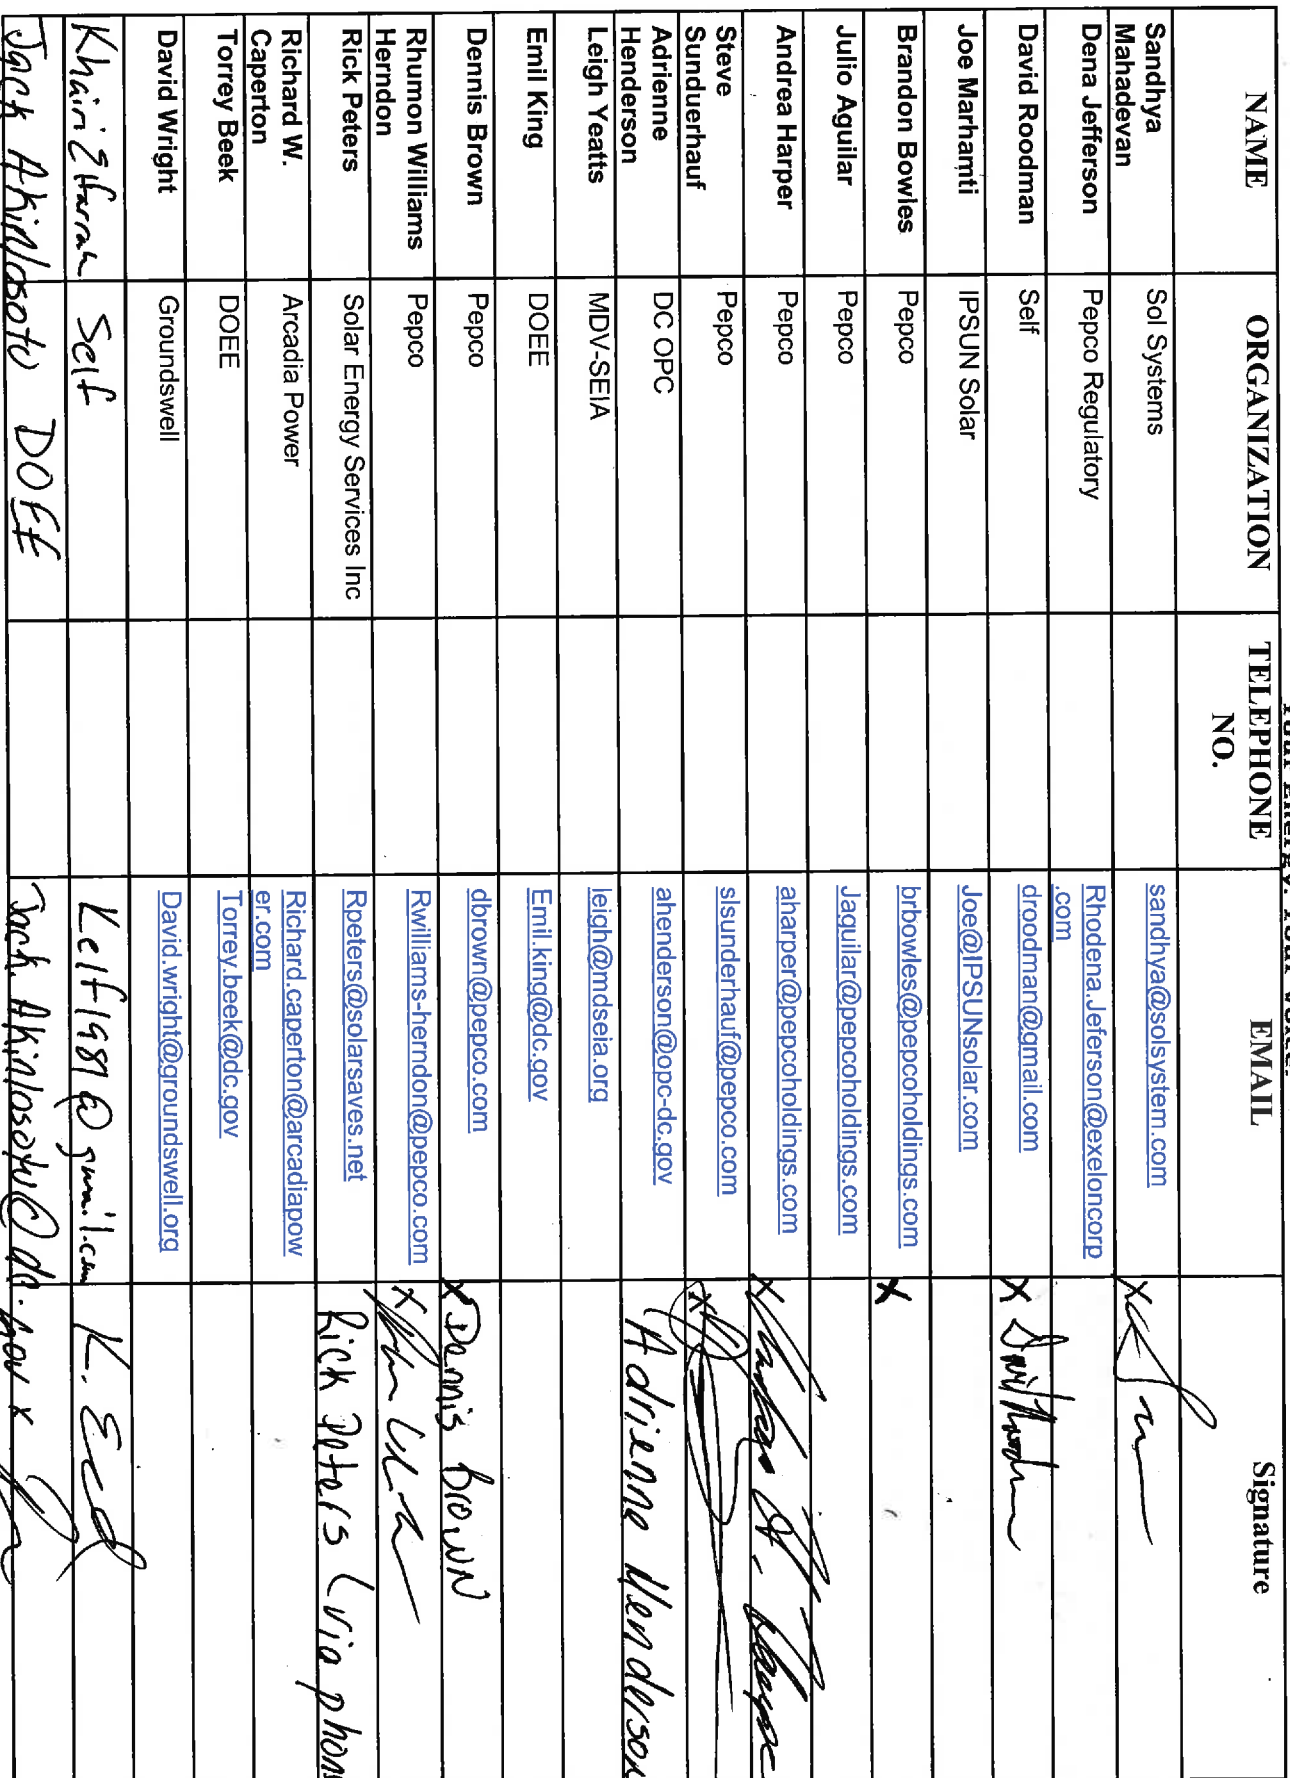 Your Energy. Your Voice.
NAME ORGANIZATION TELEPHONE NO. EMAIL Signature
Sandhya Mahadevan Sol Systems sandhya@solsystem.com X
Dena Jefferson Pepco Regulatory Rhodena.Jeferson@exeloncorp
.com
David Roodman Self droodman@gmail.com X David Roodman
Joe Marhamti IPSUN Solar Joe@IPSUNsolar.com
Brandon Bowles Pepco brbowles@pepcoholdings.com X
Julio Aguilar Pepco Jaguilar@pepcoholdings.com
Andrea Harper Pepco aharper@pepcoholdings.com X Andrea H. Harper
Steve Sunduerhauf Pepco slsunderhauf@pepco.com X
Adrienne Henderson DC OPC ahenderson@opc-dc.gov Adrienne Henderson
Leigh Yeatts MDV-SEIA leigh@mdseia.org
Emil King DOEE Emil.king@dc.gov
Dennis Brown Pepco dbrown@pepco.com X Dennis Brown
Rhumon Williams Herndon Pepco Rwilliams-herndon@pepco.com X
Rick Peters Solar Energy Services Inc Rpeters@solarsaves.net Rick Peters (via phone
Richard W. Caperton Arcadia Power Richard.caperton@arcadiapow
er.com
Torrey Beek DOEE Torrey.beek@dc.gov
David Wright Groundswell David.wright@groundswell.org
Khairi Elfarrah Self Kelf1981@gmail.com K. Elf
Jack Akinlosotu DOEE Jack.Akinlosotu@dc.gov x